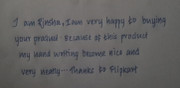 I am Rinsha, I am very happy to buying
your product Because of this product
my hand writing become nice and
very neatly - Thanks to Flipkart